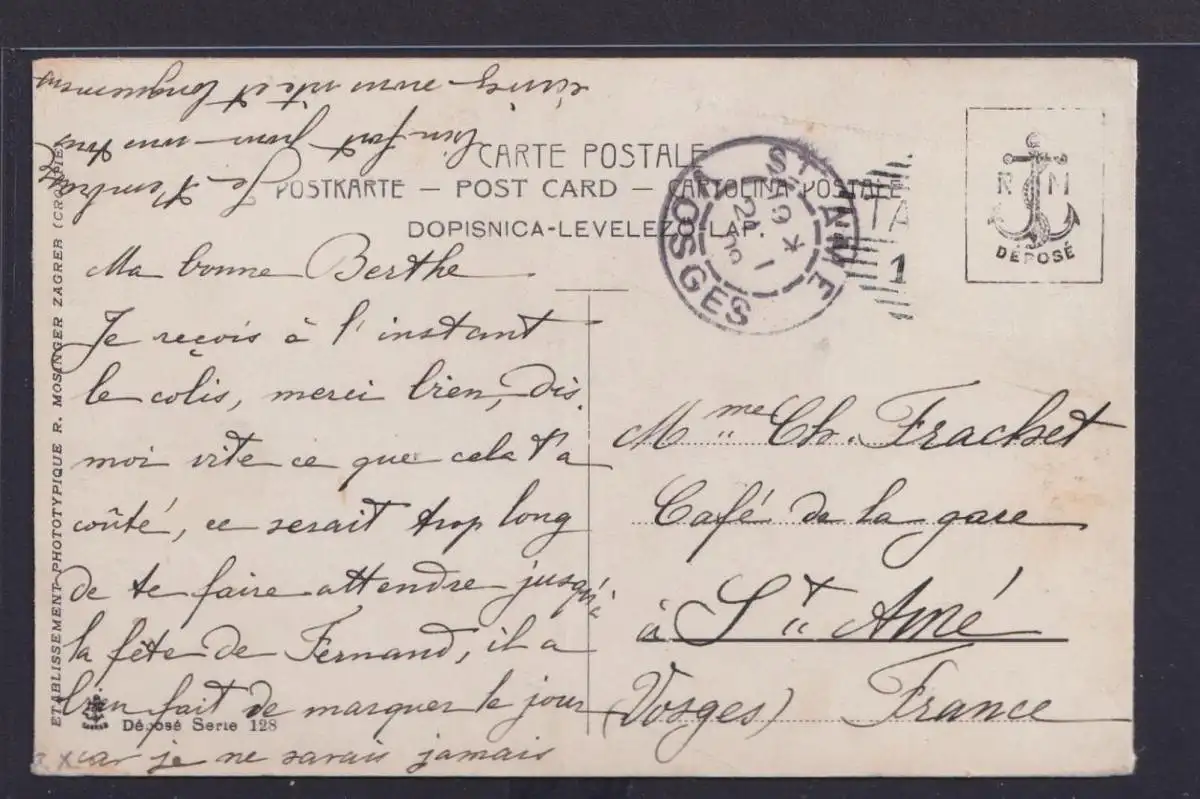 CARTE POSTALE
POSTKARTE — POST CARD — CARTOLINA POSTALE
DOPISNICA-LEVELEZŐ-LAP.
R M
DÉPOSÉ
ST AMÉ
VOSGES
TA
1
Ma bonne Berthe
Je reçois à l'instant
le colis, merci bien, dis
moi vite ce que cela t'a
coûté, ce serait trop long
de te faire attendre jusqu'à
la fête de Fernand, il a
bien fait de marquer le jour
car je ne sarais jamais
Je t'embrasse
bien fort pour nous tous
écris-nous vite et longuement
Mme Ch. Frachet
Café de la gare
à St Amé
(Vosges) France
ETABLISSEMENT PHOTOTYPIQUE R. MOSINGER ZAGREB (CROATIE)
Déposé Serie 128